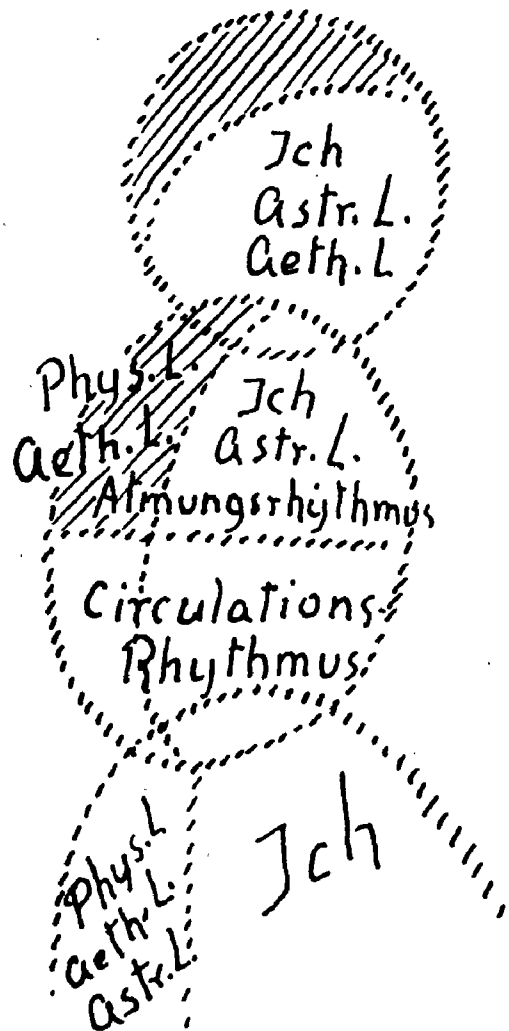 Ich
Astr. L.
Aeth. L
Phys. L.
Aeth. L.
Ich
Astr. L.
Atmungsrhythmus
Circulations-
Rhythmus
Phys. L
aeth. L.
astr. L.
Ich